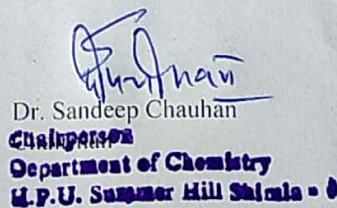 Dr. Sandeep Chauhan
Chairperson
Department of Chemistry
H.P.U. Summer Hill Shimla -